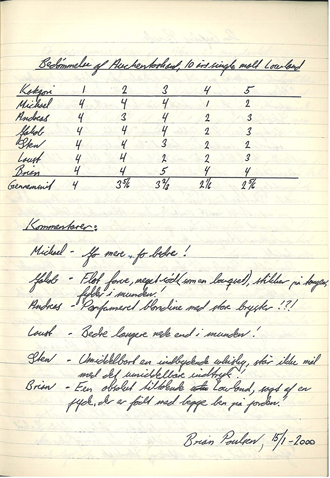 Bedømmelse af Auchentoshan, 10 års single malt Lowland
Kategori 1 2 3 4 5
Michael 4 4 4 1 2
Andreas 4 3 4 2 3
Jakob 4 4 4 2 3
Sten 4 4 3 2 2
Laust 4 4 2 2 3
Brian 4 4 5 4 4
Gennemsnit 4 3 5/6 3 2/3 2 1/6 2 5/6
Kommentarer:
Michael - Jo mere, jo bedre!
Jakob - Flot farve, meget
i munden.
Andreas - Parfumeret blondine med store bryster!?!
Laust - Bedre længere nede end i munden!
Sten - Umiddelbart en indbydende whisky, står ikke mål
med det umiddelbare indtryk.
Brian - En absolut tiltalende Lowland, sagt af en
jyde, der er født med begge ben på jorden!
Brian Poulsen, 15/1-2000